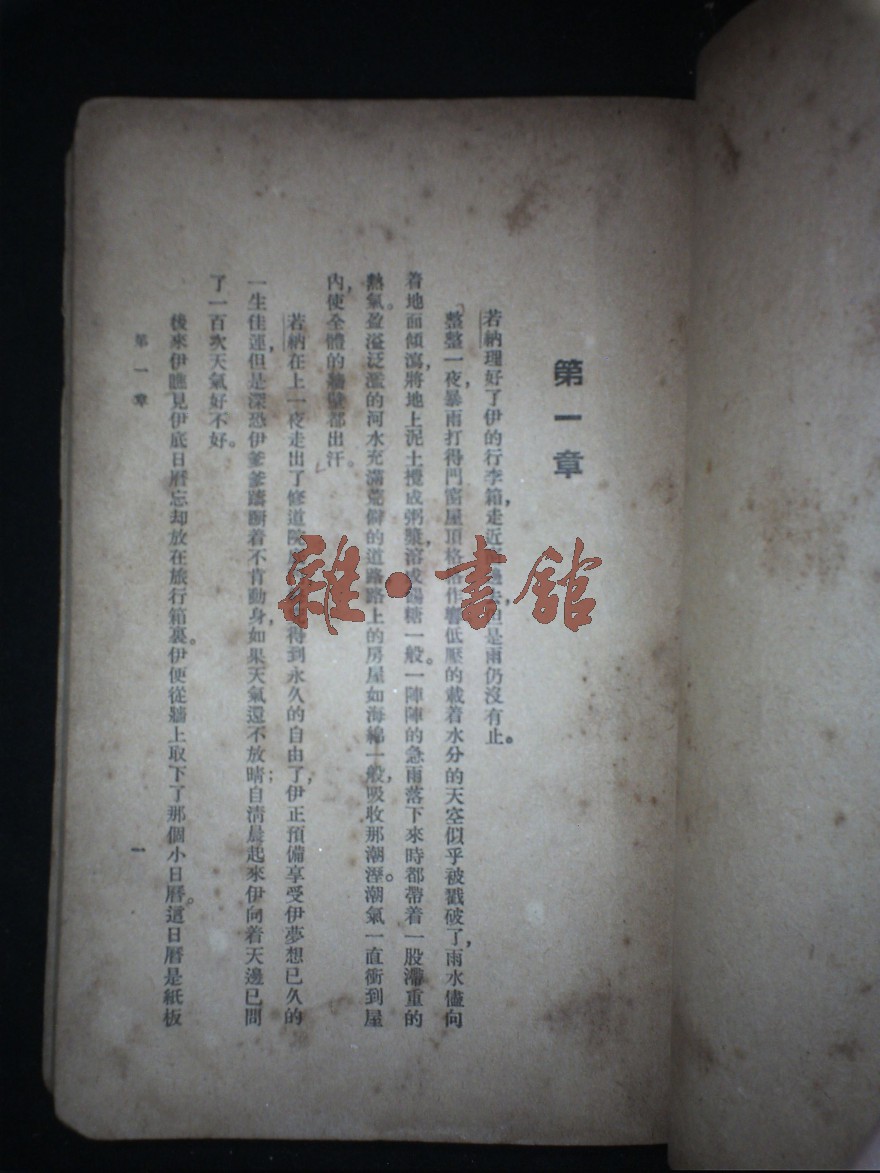 第一章
若納理好了伊的行李箱，走近但是雨仍沒有止。
整整一夜，暴雨打得門窗屋頂格格作響低壓的載着水分的天空似乎被戳破了，雨水儘向
着地面傾瀉，將地上泥土攪成粥漿，溶糖一般。一陣陣的急雨落下來時都帶着一股滯重的
熱氣。盈溢泛濫的河水充滿荒僻的道路路上的房屋如海綿一般，吸收那潮溼。潮氣一直衝到屋
內，使全體的牆壁都出汗。
若納在上一夜走出了修道院得到永久的自由了，伊正預備享受伊夢想已久的
一生佳運，但是深恐伊爹爹躊躇着不肯動身，如果天氣還不放晴；自清晨起來伊向着天邊已問
了一百次天氣好不好。
後來伊瞧見伊底日曆忘却放在旅行箱裏。伊便從牆上取下了那個小日曆。這日曆是紙板
第一章
一
雜·書館